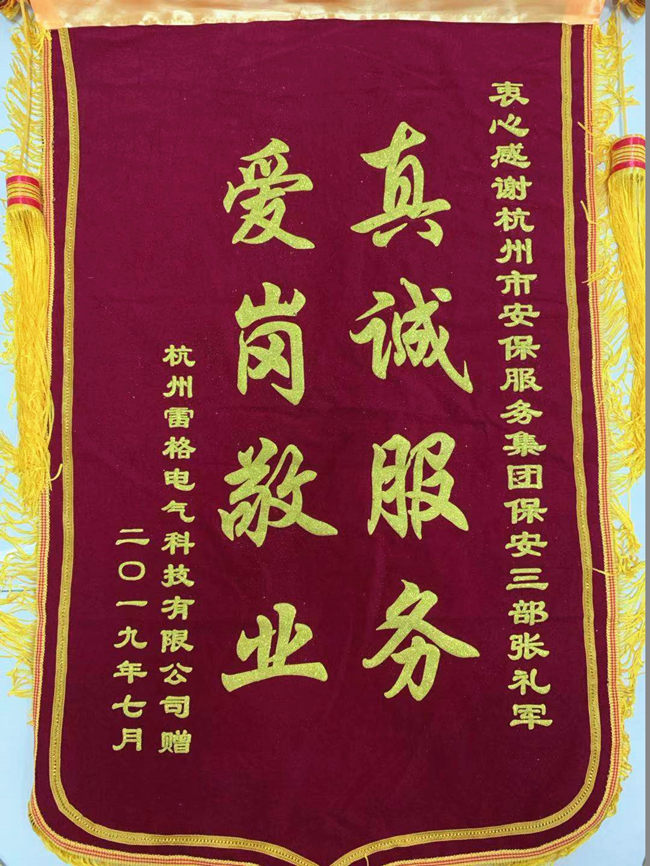 衷心感谢杭州市安保服务集团保安三部张礼军
真诚服务
爱岗敬业
杭州雷格电气科技有限公司赠
二〇一九年七月